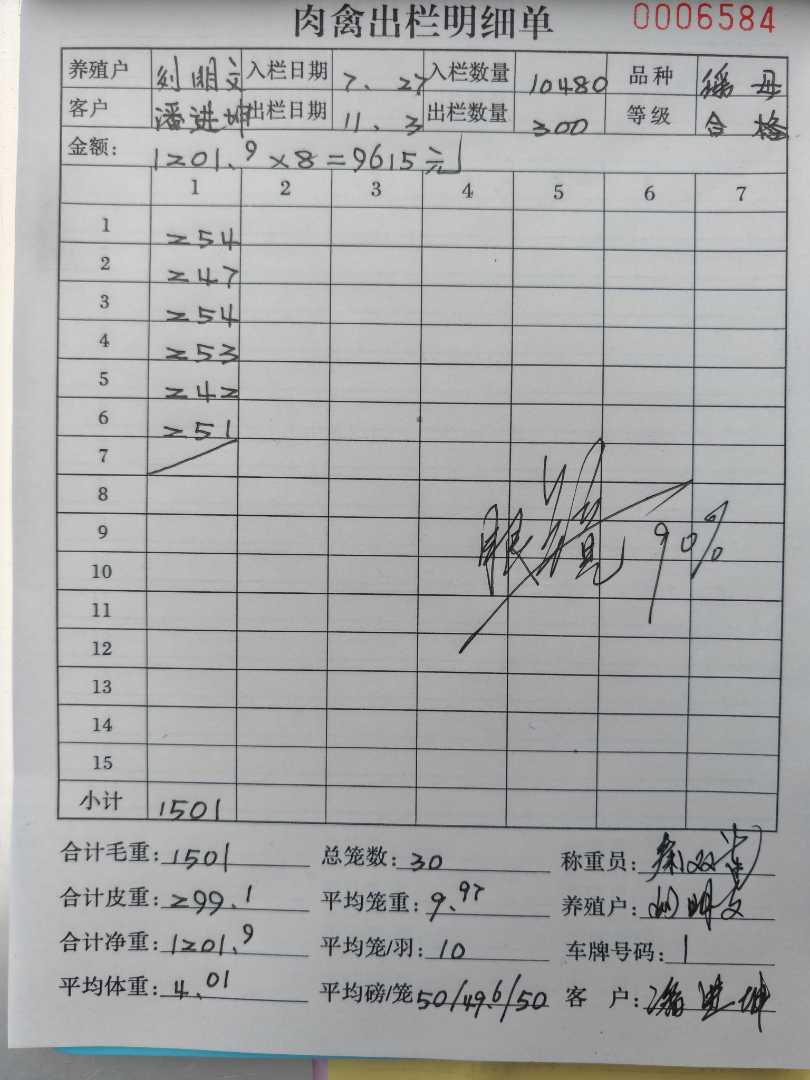 肉禽出栏明细单 0006584
养殖户 刘明文 入栏日期 7.27 入栏数量 10480 品种 瑶母
客户 潘进坤 出栏日期 11.3 出栏数量 300 等级 合格
金额: 1201.9×8=9615元
1 2 3 4 5 6 7
1 254
2 247
3 254
4 253
5 242
6 251
7
8
9 90%
10
11
12
13
14
15
小计 1501
合计毛重: 1501 总笼数: 30 称重员:
合计皮重: 299.1 平均笼重: 9.97 养殖户: 刘明文
合计净重: 1201.9 平均笼/羽: 10 车牌号码: 1
平均体重: 4.01 平均磅/笼 50/49.6/50 客户: 潘进坤